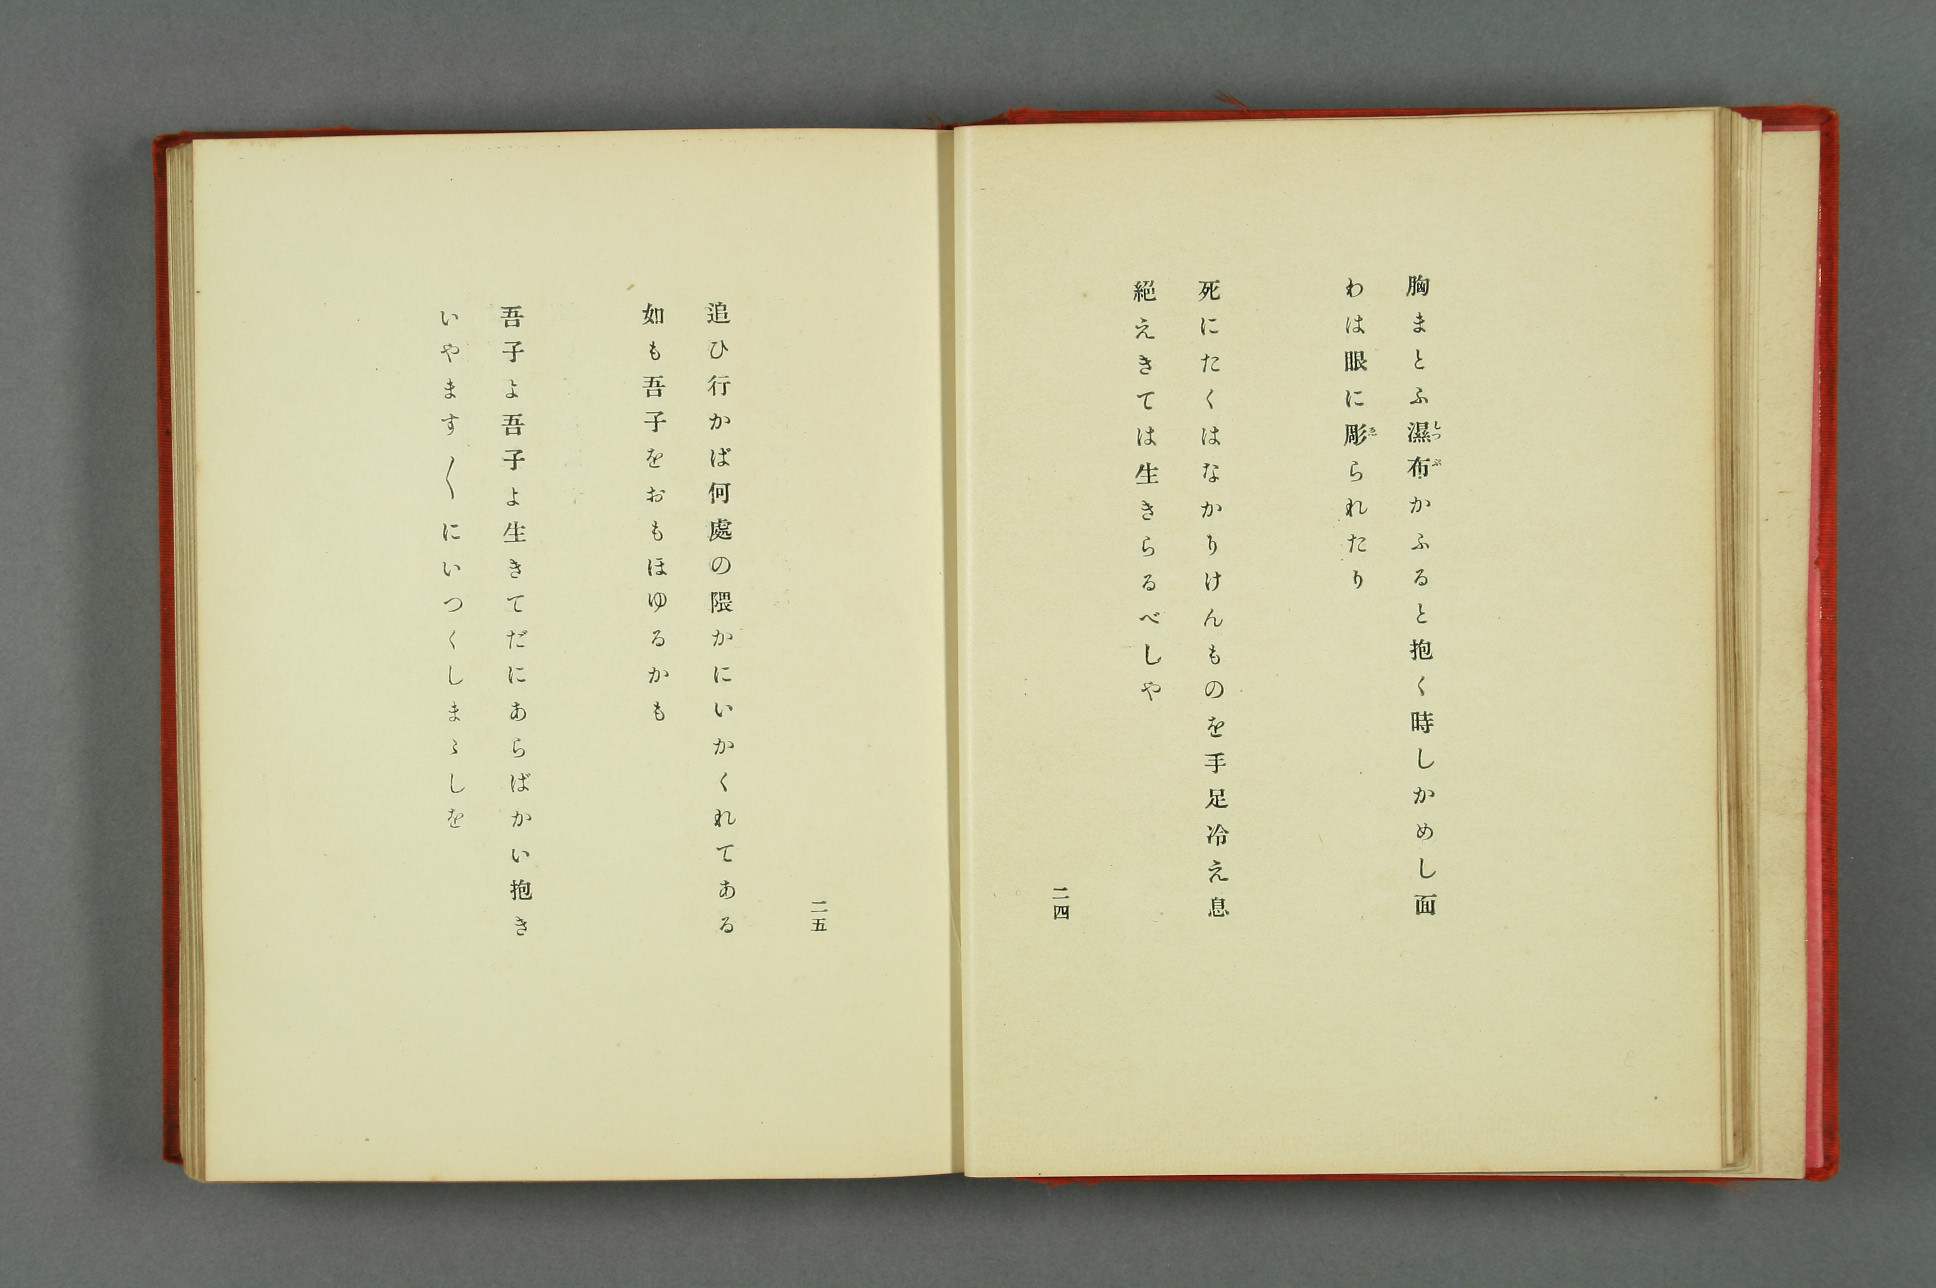 胸まとふ濕布かふると抱く時しかめし面
わは眼に彫られたり
死にたくはなかりけんものを手足冷え息
絕えきては生きらるべしや
二四
二五
追ひ行かば何處の隈かにいかくれてある
如も吾子をおもほゆるかも
吾子よ吾子よ生きてだにあらばかい抱き
いやます〱にいつくしまゝしを